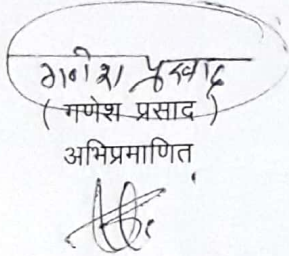 गणेश प्रसाद
( गणेश प्रसाद )
अभिप्रमाणित